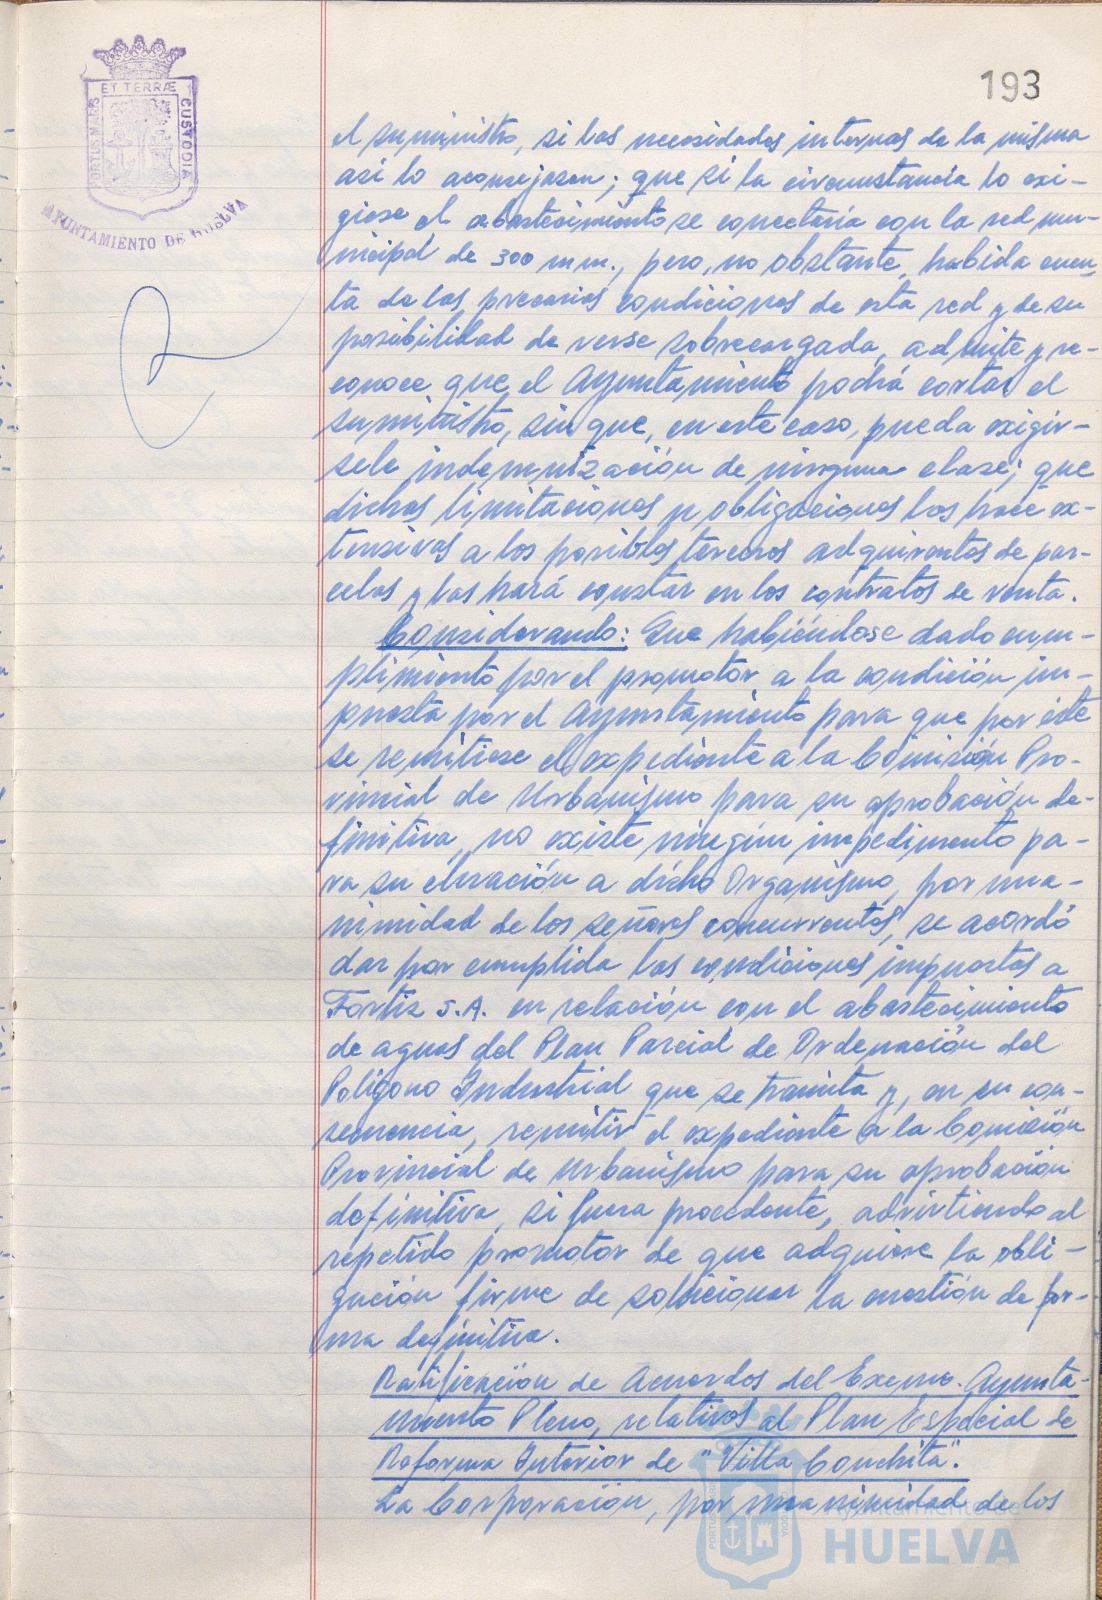 ET TERRÆ
PORTUS MARIS
CUSTODIA
AYUNTAMIENTO DE HUELVA
193
el suministro, si las necesidades internas de la misma
asi lo aconsejasen; que si la circunstancia lo exi-
giese el abastecimiento se conectaría con la red mu-
nicipal de 300 mm., pero, no obstante, habida cuen-
ta de las precarias condiciones de esta red y de su
posibilidad de verse sobrecargada, admite y re-
conoce que el Ayuntamiento podrá cortar el
suministro, sin que, en este caso, pueda exigir-
sele indemnización de ninguna clase; que
dichas limitaciones y obligaciones las hace ex-
tensivas a los posibles terceros adquirentes de par-
celas y las hará constar en los contratos de venta.
Considerando: Que habiéndose dado cum-
plimiento por el promotor a la condición im-
puesta por el Ayuntamiento para que por éste
se remitiese el expediente a la Comisión Pro-
vincial de Urbanismo para su aprobación de-
finitiva, no existe ningún impedimento pa-
ra su elevación a dicho Organismo, por una-
nimidad de los señores concurrentes, se acordó
dar por cumplida las condiciones impuestas a
Fortiz S.A. en relación con el abastecimiento
de aguas del Plan Parcial de Ordenación del
Poligono Industrial que se tramita y, en su con-
secuencia, remitir el expediente a la Comisión
Provincial de Urbanismo para su aprobación
definitiva, si fuera procedente, advirtiendo al
repetido promotor de que adquiere la obli-
gación firme de solucionar la cuestión de for-
ma definitiva.
Ratificación de Acuerdos del Excmo. Ayunta-
miento Pleno, relativos al Plan Especial de
Reforma Interior de "Villa Conchita".
La Corporación, por unanimidad de los
Ayuntamiento de
HUELVA